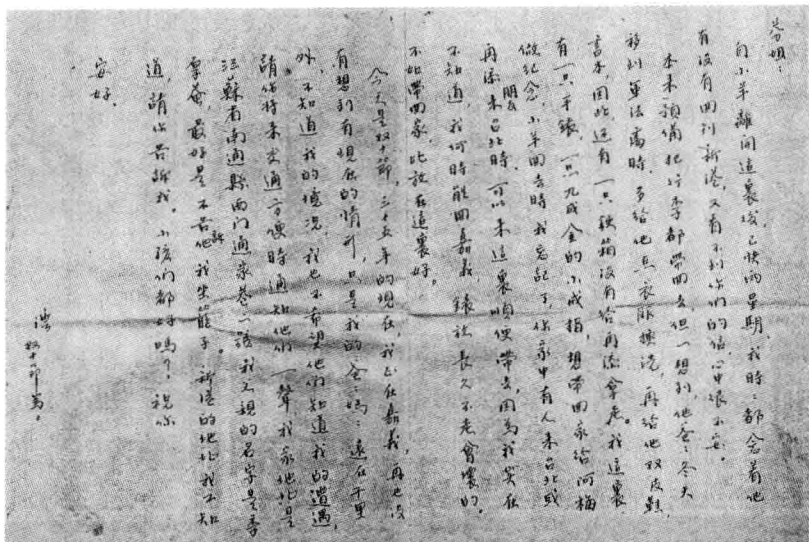 芬姐：
自小羊離開這裏後，已快兩星期，我時二都念着他
有沒有回到新港，又看不到你們的信，心中很不安。
本來預備把行李都帶回去，但一想到，他爸二冬天
移到軍法處時，多給他點衣服換洗，再給他双皮鞋，
書本，因此還有一只籐箱沒有給再添拿走。我這裏
有一只手錶，一只九成金的小戒指，想帶回家給阿梅
做紀念，小羊回去時我忘記了，你家中有人來台北或朋友
再添來台北時，可以來這裏順便帶去，因為我实在
不知道，我何時能回嘉義，錶放長久不走會壞的。
不如帶回家，比放在這裏好。
今天是双十節，三十五年的現在，我正在嘉義，再也沒
有想到有現在的情形，只是我的爸二媽二遠在千里
外，不知道我的境況，我也不希望他們知道我的遭遇，
請你將來交通方便時通知他們一聲我家地址是
江蘇省南通縣西門通家巷一號我父親的名字是季
，最好是不告訴他我坐籠子。新港的地址我不知
道，請你告訴我。小孩們都好嗎？祝你
安好。
澐
双十節寫。